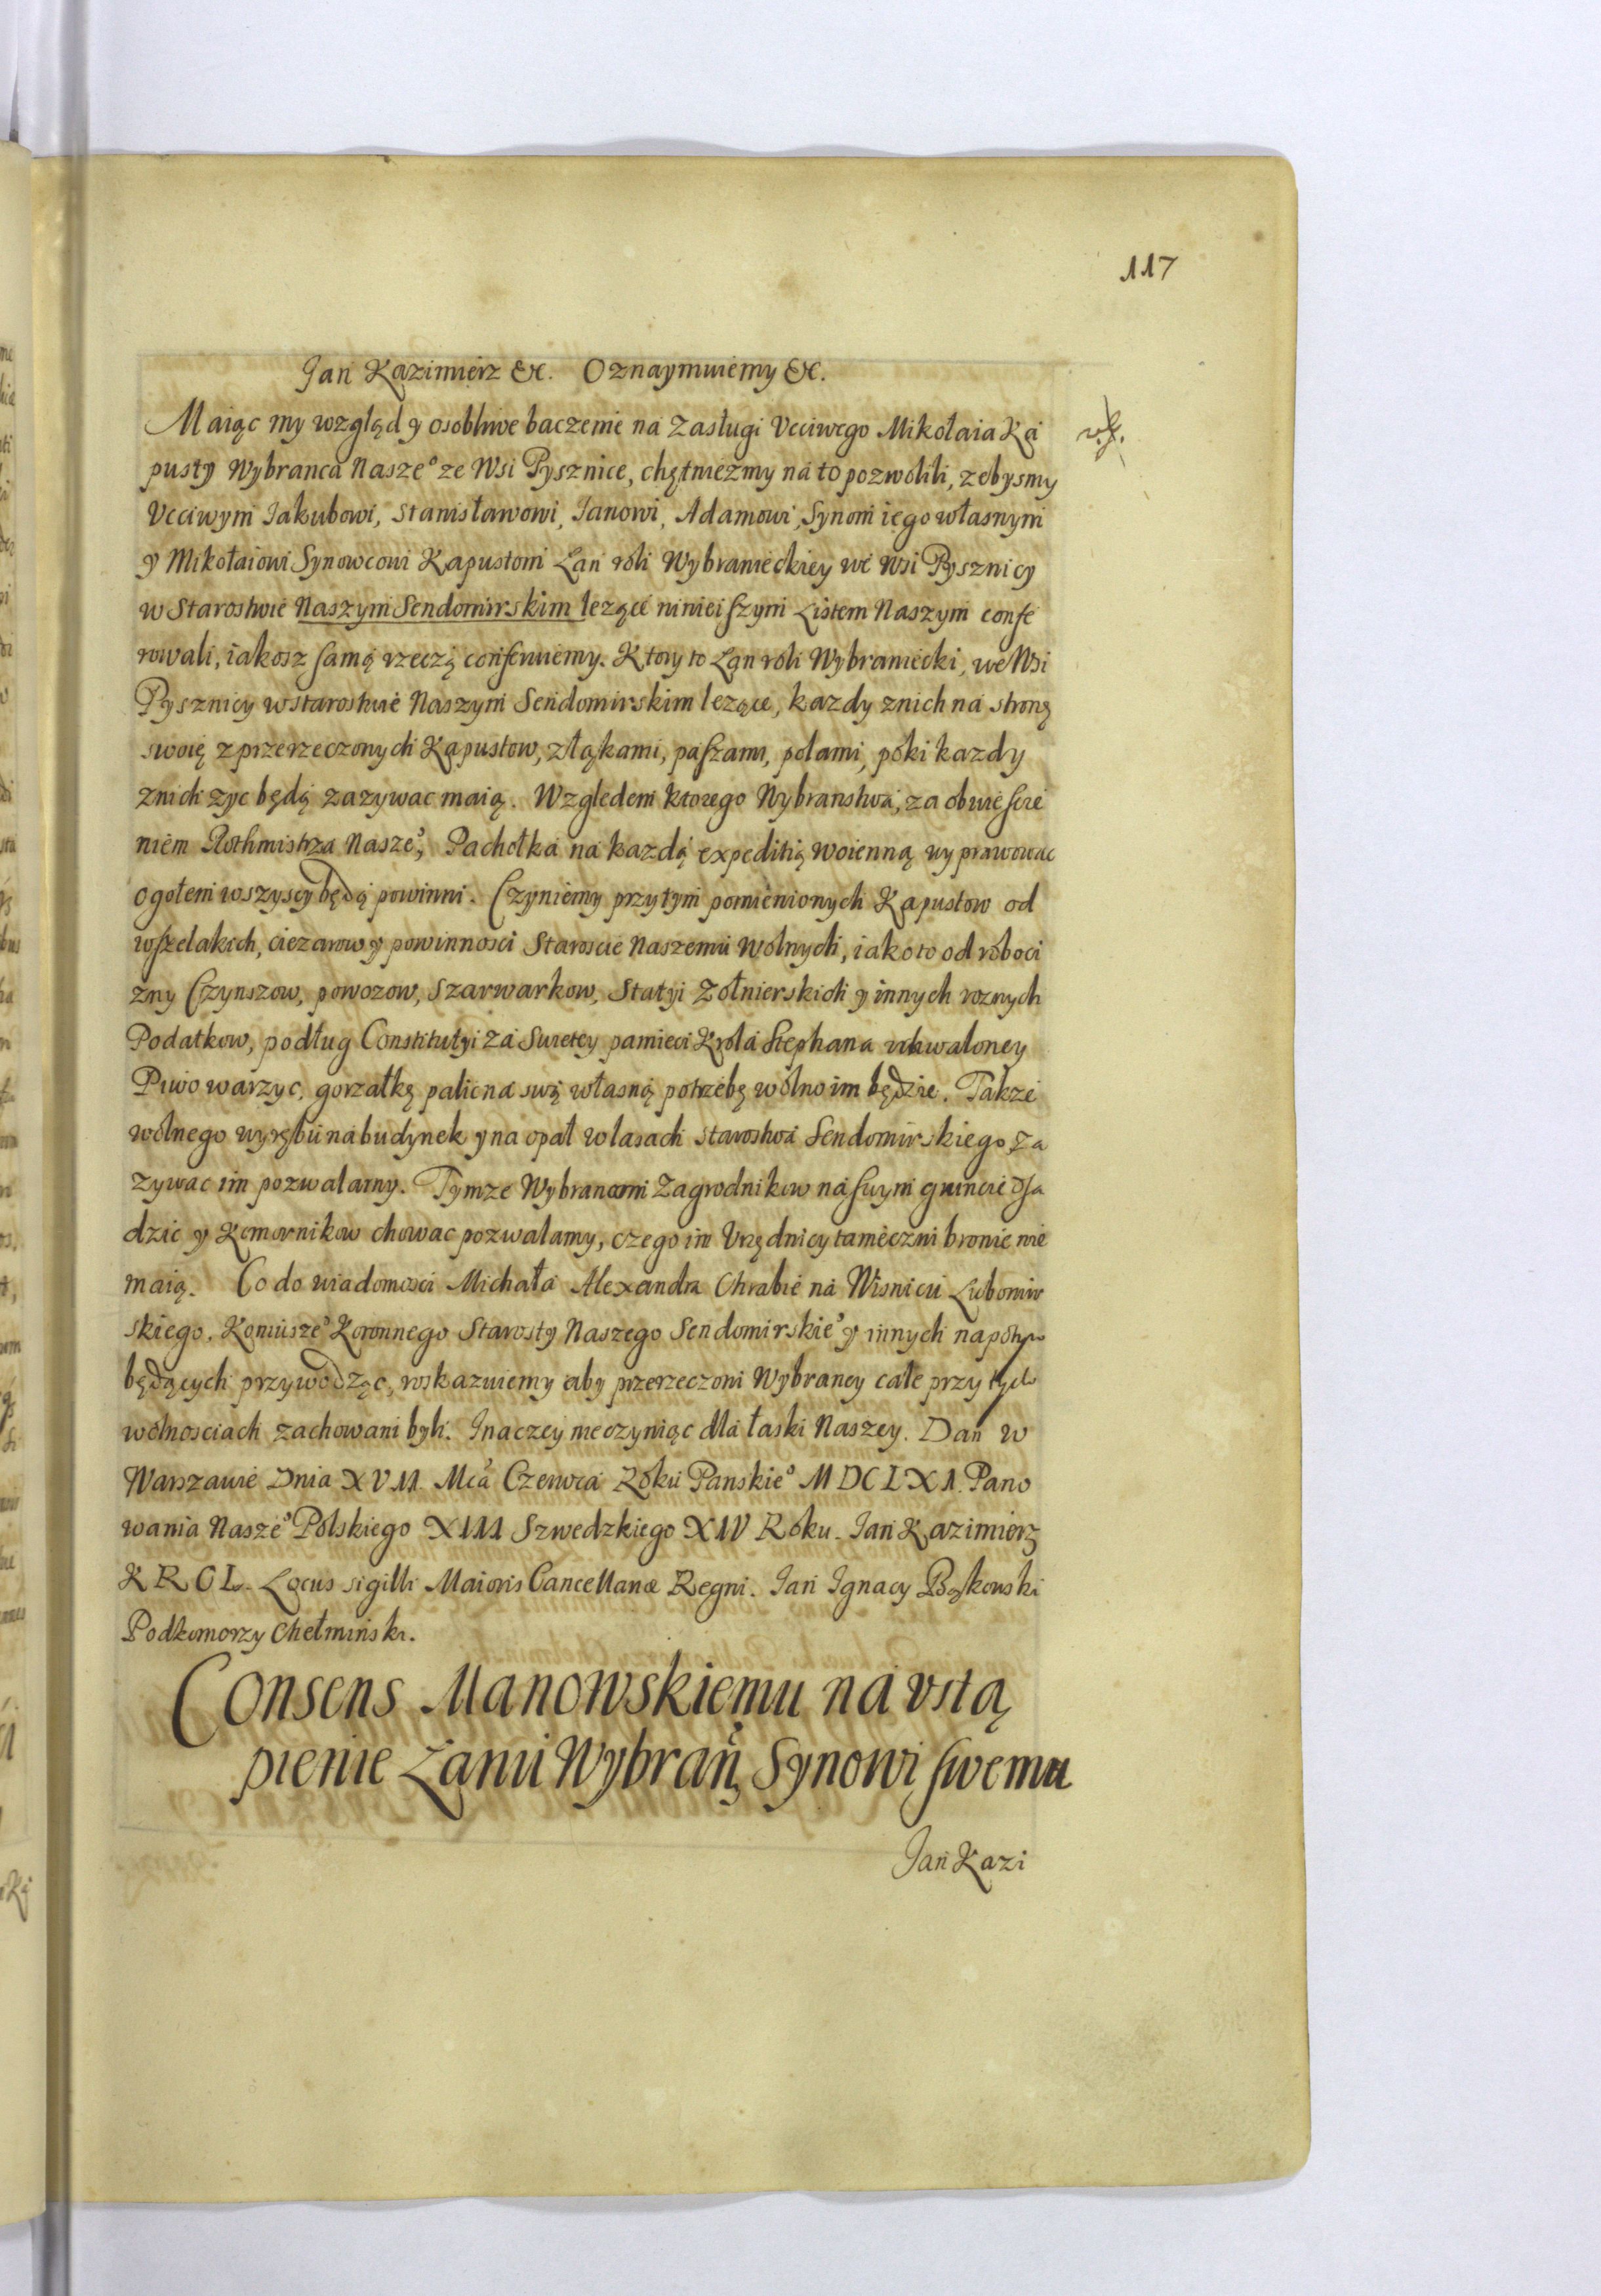 117
Jan Kazimierz &c. Oznaymuiemy &c.
Maiąc my wzgląd y osobliwe baczenie na zasługi Vcciwego Mikołaia Ka
pusty Wybranca Nasze⁰ ze Wsi Pysznice, chętniezmy na to pozwolili, zebysmy
Vcciwym Iakubowi, Stanisławowi, Ianowi, Adamowi, Synom iego własnym
y Mikołaiowi Synowcowi Kapustom Łan roli Wybranieckiey we Wsi Pysznicy
w Starostwie Naszym Sendomirskim lezące ninieiszym Listem Naszym confe
rowali, iakosz samą rzeczą conferuiemy. Ktory to Łan roli Wybraniecki, we Wsi
Pysznicy w starostwie Naszym Sendomirskim lezące, kazdy z nich na stronę
swoię z przerzeczonych Kapustow, z łąkami, paszami, polami, poki kazdy
z nich zyc będą zazywac maią. Względem ktorego Wybranstwa, za obwiesce
niem Rothmistrza Nasze⁰, Pachołka na kazdą expeditią woienną wyprawowac
ogołem wszyscy będą powinni. Czyniemy przytym pomienionych Kapustow od
wszelakich, ciezarow y powinnosci Staroscie Naszemu wolnych, iako to od roboci
zny Czynszow, powozow, Szarwarkow, Statyi Zołnierskich y innych roznych
Podatkow, podług Constitutyi za Swietey pamieci Krola Stephana vchwaloney
Piwo warzyc, gorzałkę palic na swą własną potrzebę wolno im będzie. Takze
wolnego wyrębu na budynek y na opał w lasach starostwa Sendomirskiego, za
zywac im pozwalamy. Tymze Wybrancom Zagrodnikow na swym gruncie Osa
dzic y Komornikow chowac pozwalamy, czego im Vrzędnicy tameczni bronic nie
maią. Co do wiadomosci Michała Alexandra Chrabie na Wisniczu Lubomir
skiego, Koniusze⁰ Koronnego Starosty Naszego Sendomirskie⁰ y innych napotym
będących przywodząc, roskazuiemy aby przerzeczoni Wybrancy cale przy tych
wolnosciach zachowani byli. Inaczey nie czyniąc dla łaski Naszey. Dan w
Warszawie Dnia XVII. Mca Czerwca Roku Panskie⁰ MDCLXI. Pano
wania Nasze⁰ Polskiego XIII Szwedzkiego XIV Roku. Jan Kazimierz
KROL. Locus sigilli Maioris Cancellariæ Regni. Jan Ignacy Bąkowski
Podkomorzy Chełminski.
Consens Manowskiemu na vstą
pienie Łanu Wybrań: Synowi swemu
Jan Kazi